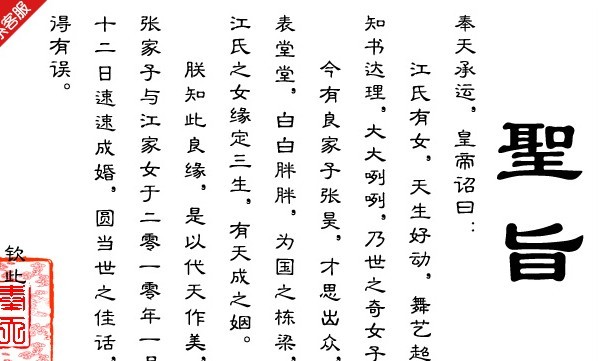 聖旨
奉天承运，皇帝诏曰：
江氏有女，天生好动，舞艺超
知书达理，大大咧咧，乃世之奇女子
今有良家子张昊，才思出众，
表堂堂，白白胖胖，为国之栋梁，
江氏之女缘定三生，有天成之姻。
朕知此良缘，是以代天作美，
张家子与江家女于二零一零年一月
十二日速速成婚，圆当世之佳话，
得有误。
钦此
客服